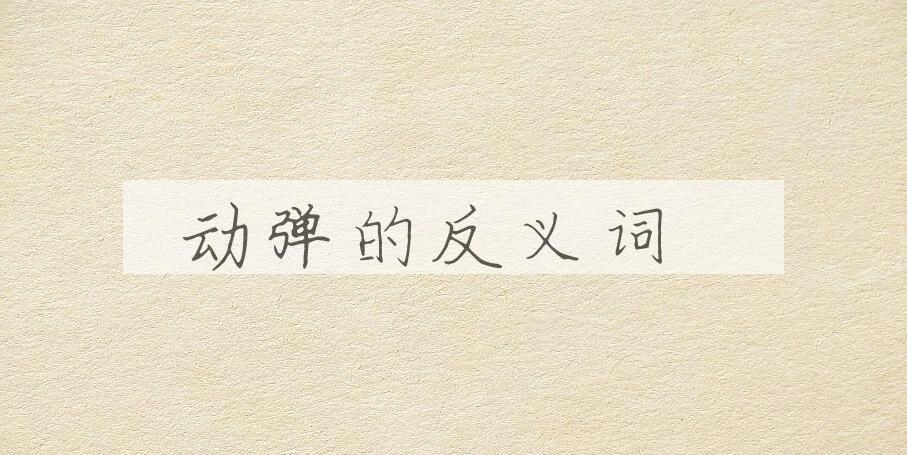 动弹的反义词